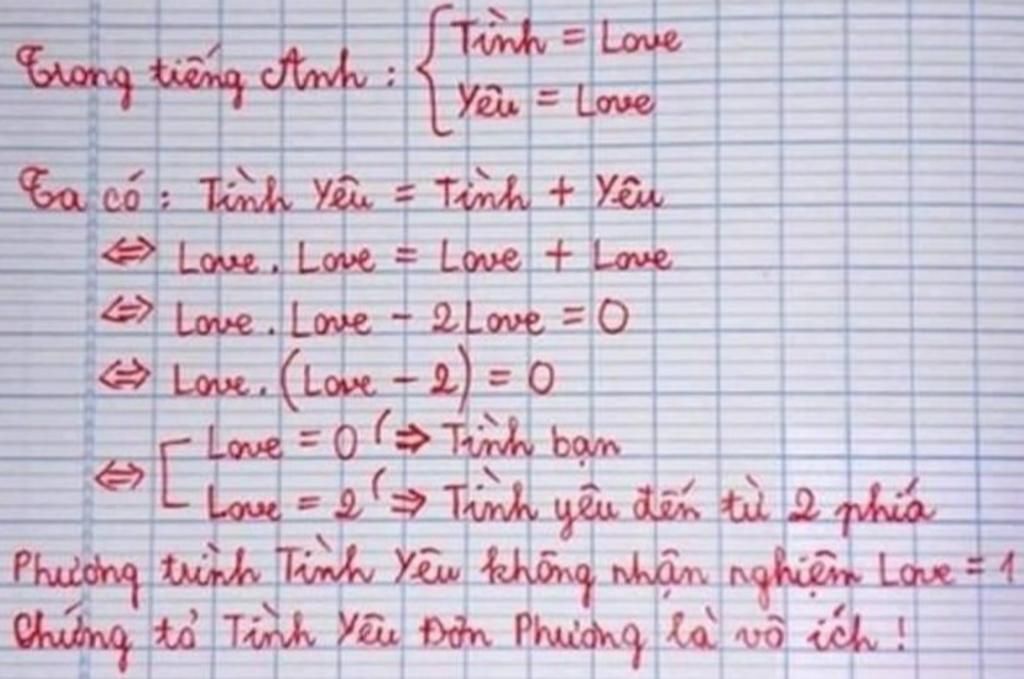 Trong tiếng Anh : { Tình = Love
Yêu = Love
Ta có : Tình Yêu = Tình + Yêu
⇔ Love . Love = Love + Love
⇔ Love . Love - 2 Love = 0
⇔ Love . (Love - 2) = 0
⇔ [ Love = 0 (⇒ Tình bạn
Love = 2 (⇒ Tình yêu đến từ 2 phía
Phương trình Tình Yêu không nhận nghiệm Love = 1
Chứng tỏ Tình Yêu Đơn Phương là vô ích !